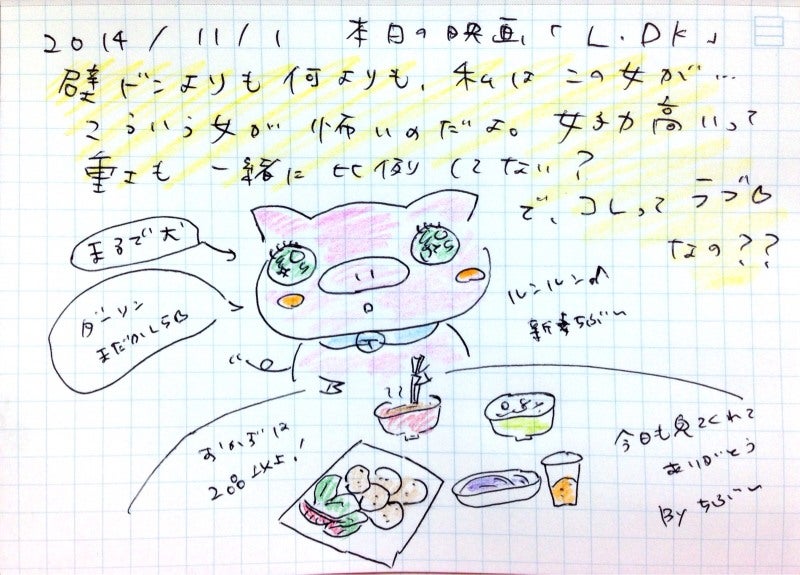 2014/11/1 本日の映画,「L・DK」
壁ドンよりも何よりも、私はこの女が…
こういう女が怖いのだよ。女子力高いって
重さも一緒に比例してない?
で、コレってラブロ
なの??
まるで犬
ダーリン
まだかしら
ルンルン♪
新妻ちぶ〜
T
おかずは
200以上!
今日も見てくれて
ありがとう
By ちぶ〜